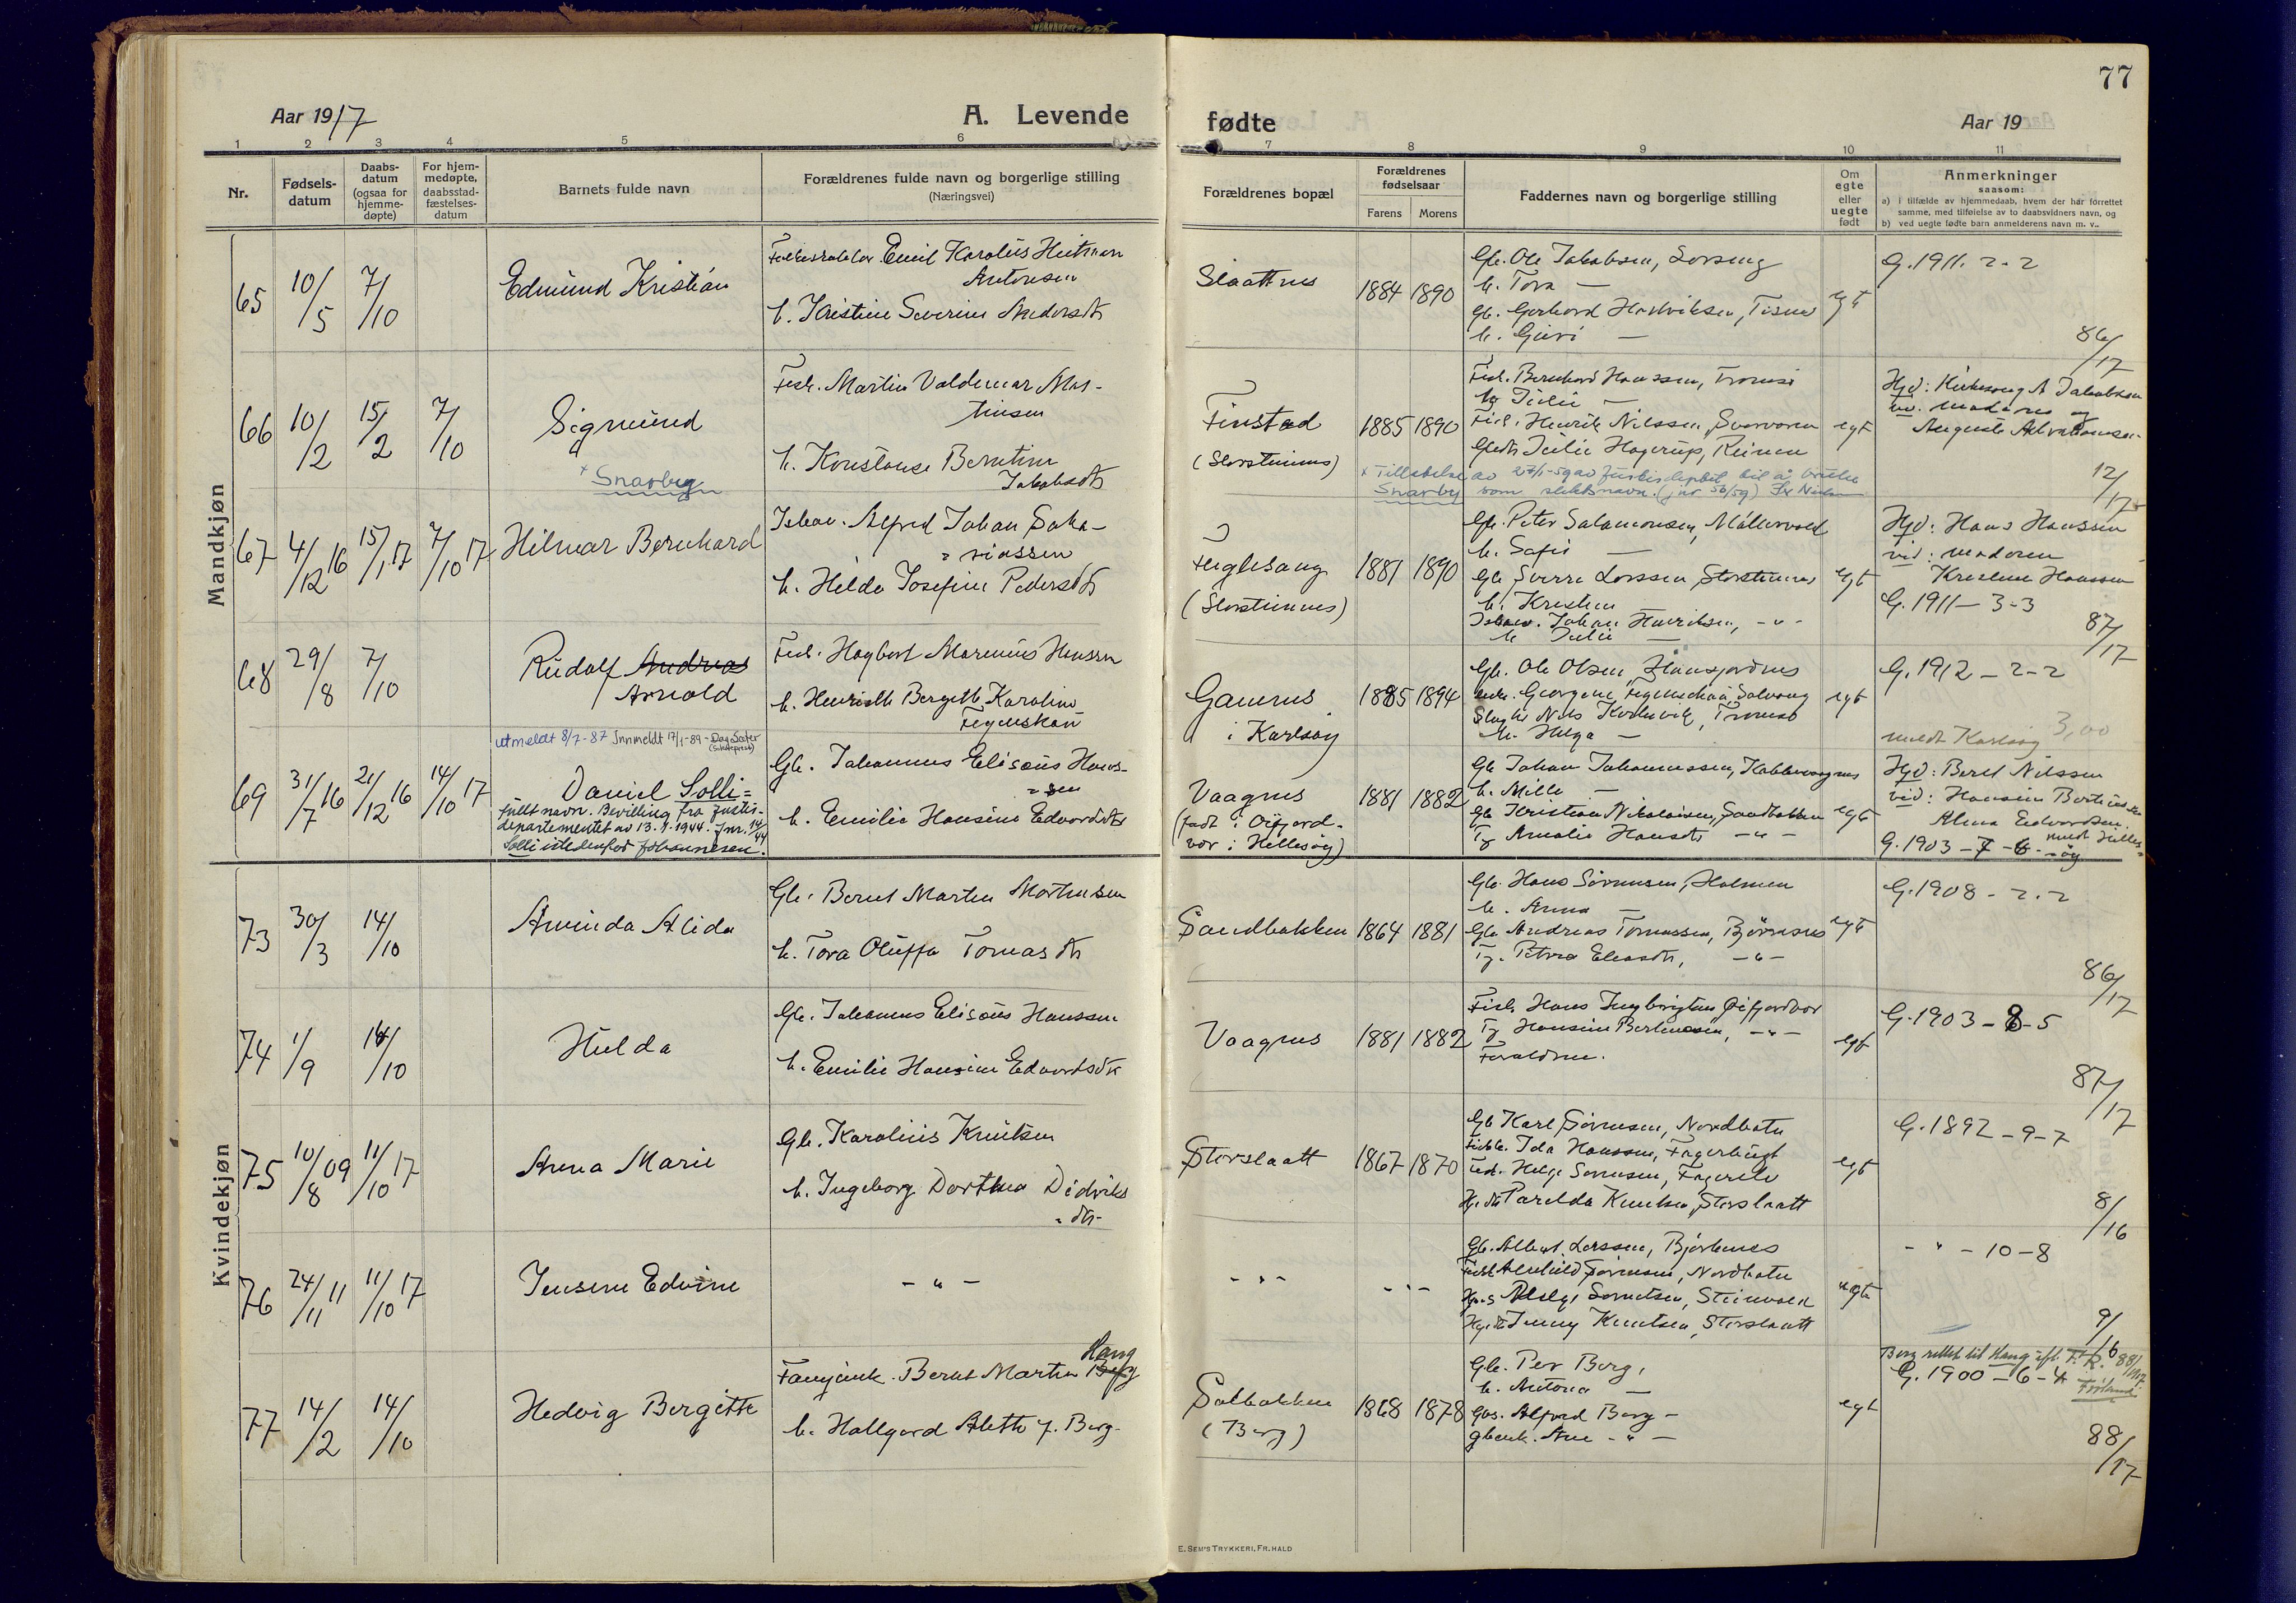 77
Aar 1917
A. Levende
fødte
Aar 19
1 2 3 4 5 6 7 8 9 10 11
Nr.
Fødsels-
datum
Daabs-
datum
(ogsaa for
hjemme-
døpte)
For hjem-
medøpte,
daabsstad-
fæstelses-
datum
Barnets fulde navn
Forældrenes fulde navn og borgerlige stilling
(Næringsvei)
Forældrenes bopæl
Forældrenes
fødselsaar
Farens Morens
Faddernes navn og borgerlige stilling
Om
egte
eller
uegte
født
Anmerkninger
saasom:
a) i tilfælde av hjemmedaab, hvem der har forrettet
samme, med tilføielse av to daabsvidners navn, og
b) ved uegte fødte barn anmelderens navn m. v..
Mandkjøn
65 10/5 7/10
Edmund Kristian
Emil Karolus
Antonsen
h. Kristine Severine Andersdtr
Slaattnes
1884 1890
Gb. Ole Jakobsen,
h. Tora —
h. Guri —
egt
G. 1911. 2-2
86/17
66 10/2 15/2 7/10
Sigmund
+ Snarby
Fisk. Martin Valdemar Mar-
tinsen
h. Konstanse Berntine
Jakobsdtr
Finstad
(Storsteinnes)
1885 1890
Fisk. Bernhard Hanssen, Tromsø
h. Julie —
Fisk. Henrik Nilssen,
Julie Hagerup, Reinen
egt
+ Tillatelse av 27/1-59 av Justisdeptet til å bruke
Snarby som slektsnavn. (jnr 56/59)
Hjd: A Jakobsen
v. moderen og
12/17
67 4/12 16 15/1 17 7/10 17
Hilmar Bernhard
Ishav. Alfred Johan Saka-
riassen
h. Hilda Josefine Pedersdtr
Fuglesang
(Storsteinnes)
1881 1890
Gb. Peter Salamonsen,
h. Sofie —
Gb Sverre Larssen, Storsteinnes
h. Kristine
Ishav. Johan Henriksen, -"-
h Julie —
egt
Hjd: Hans Hanssen
vid: moderen
Kristine Hanssen
G. 1911 — 3-3
87/17
68 29/8 7/10
Rudolf Andreas
Arnold
Fisk. Hagbart Marenius Hanssen
h. Henriette Bergitte Karoline
Fegenskou
Gamnes
i Karlsøy
1885 1894
Gb. Ole Olsen,
Georgine
Nils Tromsø
h. Helga —
egt
G. 1912 — 2-2
3,00
meldt Karlsøy
utmeldt 8/7-87 Innmeldt 17/1-89 - Dag Sæter
69 31/7 16 21/12 16 14/10 17
Daniel Solli =
fullt navn. Bevilling fra Justis-
departementet av 13.1.1944. Jnr. 14/44
Solli istedenfor Johannesen.
Gb. Johannes Elisæus Hans-
sen
h. Emilie Hansine Edvardsdtr
Vaagnes
(født i Øifjord-
vær i Hillesøy)
1881 1882
Gb Johan Johannessen,
h. Milla —
Gb Kristian Nikolaisen, Sandbakken
Tj Amalie Hansdtr -"-
egt
Hjd: Berit Nilssen
vid: Hansine
Alma Edvardsen
meldt Hilles-
øy
G. 1903 - 7 - 6
Kvindekjøn
73 30/3 14/10
Aminda Alida
Gb. Bernt Martin Mortensen
h. Tora Oluffa Tomasdtr
Sandbakken
1864 1881
Gb. Hans Sørensen, Holmen
h. Anna —
Gb Andreas Tomassen, Bjørnsnes
Tj. Petra Eleasdtr, -"-
egt
G. 1908 - 2-2
86/17
74 1/9 14/10
Hulda
Gb. Johannes Elisæus Hanssen
h. Emilie Hansine Edvardsdtr
Vaagnes
1881 1882
Fisk. Hans Ingbrigtsen Øifjordvær
Tj Hansine Bertinesen, -"-
Forældrene.
egt
G. 1903 - 8 - 5
87/17
75 10/8 09 11/10 17
Anna Marie
Gb. Karolius Knutsen
h. Ingeborg Dorthea Didriks
dtr-
Storslaatt
1867 1870
Gb Karl Sørensen, Nordbotn
Ida Hanssen, Fagerbugt
Fisk. Helge Sørensen, Fagerelv
Parelda Knutsen, Storslaatt
egt
G. 1892 - 9-7
8/16
76 24/11 11 11/10 17
Jensine Edvine
— " —
- " -
- " -
Gb. Albert Larssen, Bjørknes
Sørensen, Nordbotn
Helge Steinvold
Jenny Knutsen, Storslaatt
egte
- " - 10-8
9/16
77 14/2 14/10
Hedvig Bergitte
Haug
Bernt Martin Berg
h. Hallgerd Alethe f. Berg.
Solbakken
(Berg)
1868 1878
Gb. Per Berg,
h. Antona —
Gbs. Alfred Berg -
Ane - " -
egt
Berg rettet til Haug ifl. F.R. 88/1917
G. 1900 - 6-4
88/17
E. SEM'S TRYKKERI, FR.HALD